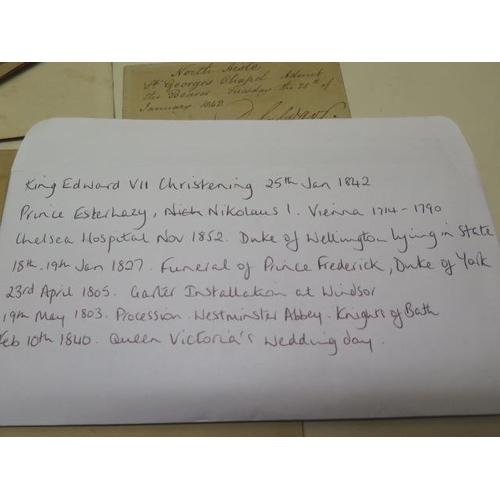 North Aisle
St Georges Chapel Admit
the Bearer Tuesday the 25th of
January 1842
King Edward VII Christening 25th Jan 1842
Prince Esterhazy, Nich Nikolaus I. Vienna 1714-1790
Chelsea Hospital Nov 1852. Duke of Wellington lying in State
18th-19th Jan 1827. Funeral of Prince Frederick, Duke of York
23rd April 1805. Garter Installation at Windsor
19th May 1803. Procession Westminster Abbey. Knights of Bath
Feb 10th 1840. Queen Victoria's Wedding day.